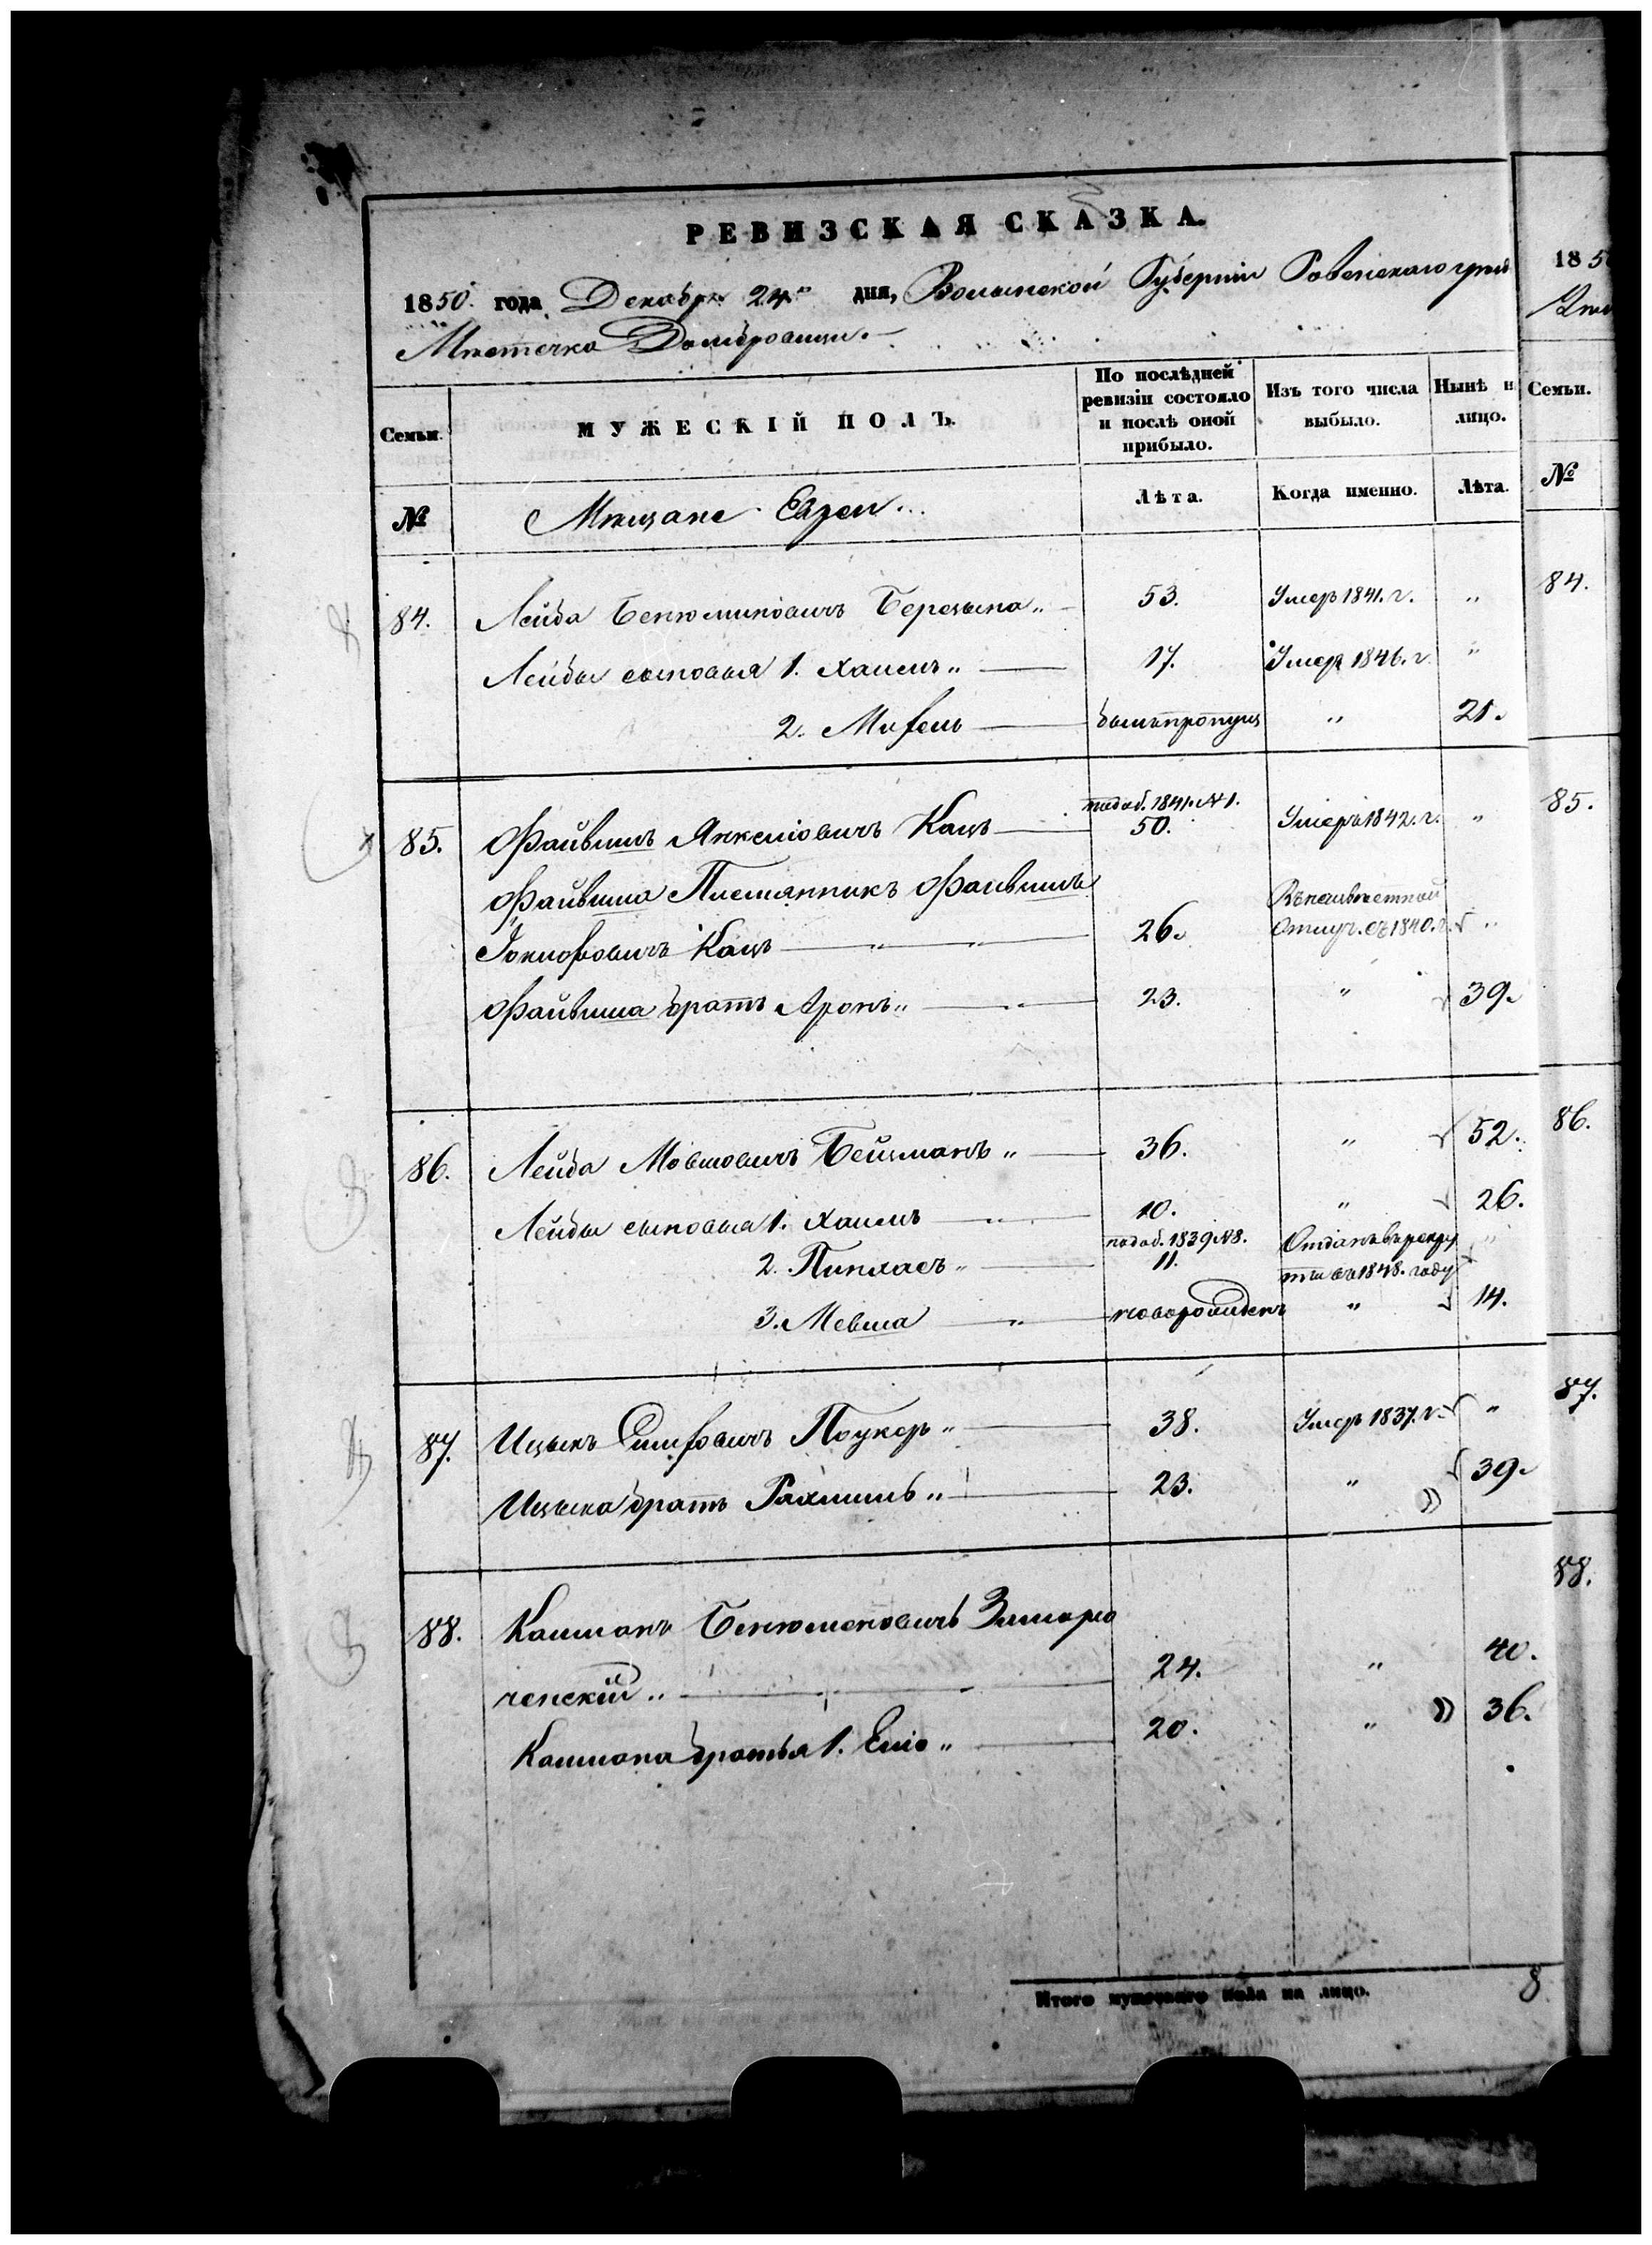 РЕВИЗСКАЯ СКАЗКА.
1850. года Декабря 24го дня, Волынской Губерніи Ровенскаго уѣзд
Мѣстечка Домбровицы.
Семьи. МУЖЕСКІЙ ПОЛЪ. По послѣдней ревизіи состояло и послѣ оной прибыло. Изъ того числа выбыло. Нынѣ н лицо.
№ Мѣщане Евреи Лѣта. Когда именно. Лѣта.
84. Лейба Бенюминовичъ Березына „ 53. Умеръ 1841. г. „
Лейбы сыновья 1. Хаимъ „ 17. Умеръ 1846. г. „
2. былъ пропущ „ 21.
85. Файвишъ Янкеліовичъ Кацъ по доб. 1841. №1. 50. Умеръ 1842. г. „
Файвиша Племянникъ Файвишъ
Кацъ „ „ 26. Въ неизвѣстной Отлуч. съ 1840. г. „
Файвиша братъ Аронъ „ 23. „ 39.
86. Лейба Мовшовичъ Бейцманъ „ 36. „ 52.
Лейбы сыновья 1. Хаимъ „ 10. „ 26.
2. Пинхасъ „ по доб. 1839 №8. 11. Отданъ въ рекру ты въ 1848. году „
3. Мевша „ новорожденъ „ 14.
87. Ицыкъ „ 38. Умеръ 1837. г. „
Ицыка братъ Рахмиль „ 23. „ 39.
88. Калманъ Бенюменовичъ
ченскій „ 24. „ 40.
Калмана братья 1. „ 20. „ 36.
Итого мужескаго пола на лицо. 8
1850
Семьи.
№
84.
85.
86.
87.
88.